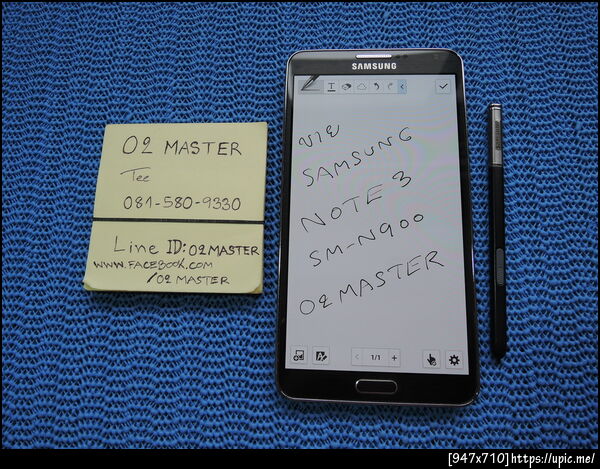 02 MASTER
Tee
081-580-9330
Line ID: 02MASTER
WWW.FACEBOOK.COM
/02 MASTER
SAMSUNG
T
1/1
ขาย
SAMSUNG
NOTE 3
SM-N900
02 MASTER
[947x710]https://upic.me/